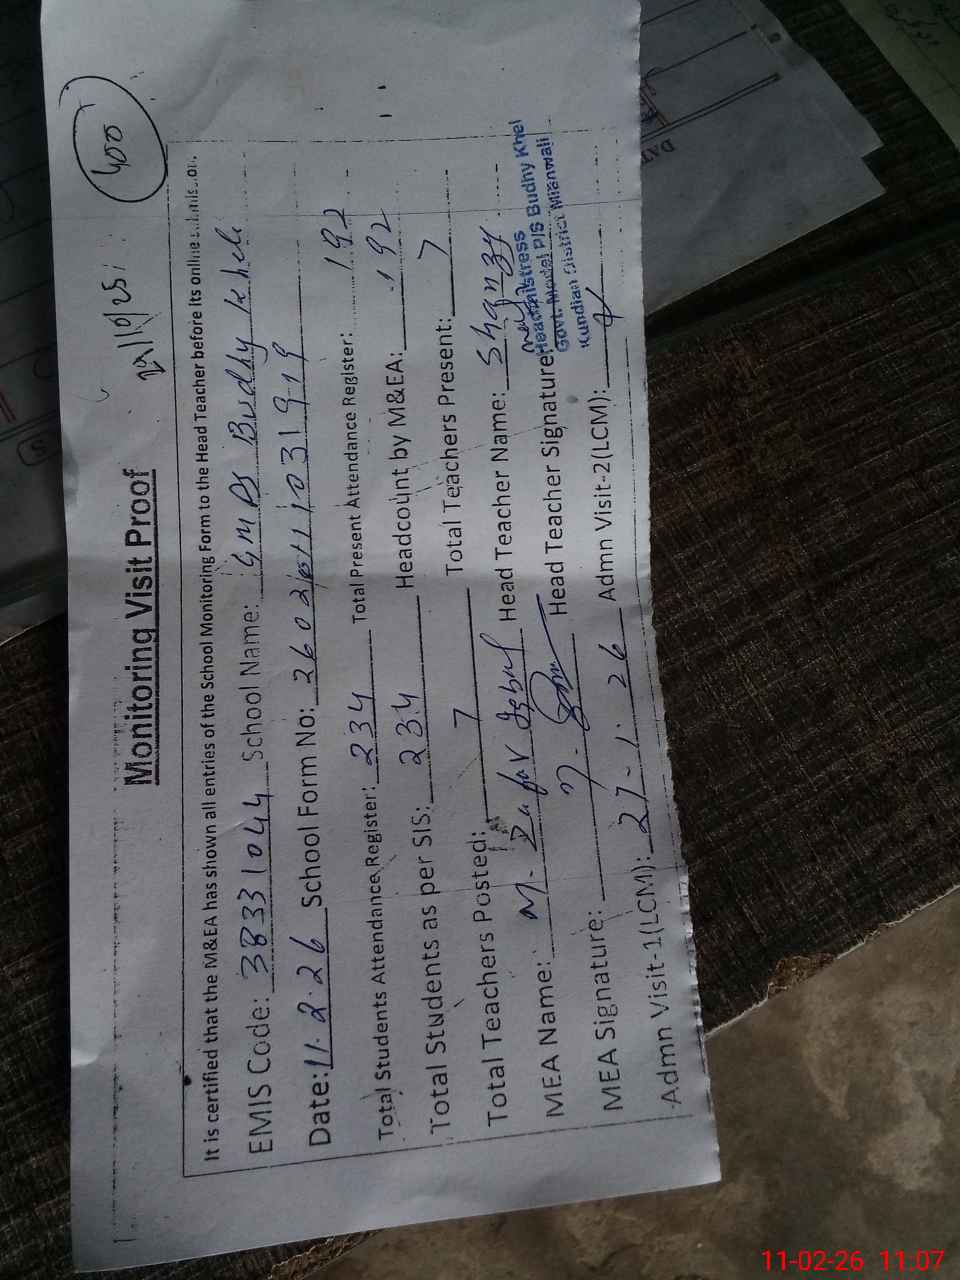 400
Monitoring Visit Proof
It is certified that the M&EA has shown all entries of the School Monitoring Form to the Head Teacher before its online
EMIS Code: 38331044 School Name: GMPS Budhy Khel
Date: 11.2.26 School Form No:
Total Students Attendance Register: 234 Total Present Attendance Register: 192
Total Students as per SIS: 234 Headcount by M&EA: 192
Total Teachers Posted: 7 Total Teachers Present: 7
MEA Name: M. Zafar Iqbal Head Teacher Name:
MEA Signature: Head Teacher Signature:
Headmistress
Govt. Model P/S Budhy Khel
Kundian District Mianwali
Admn Visit-1(LCM): 27.1.26 Admn Visit-2(LCM):
DAT
S
11-02-26 11:07